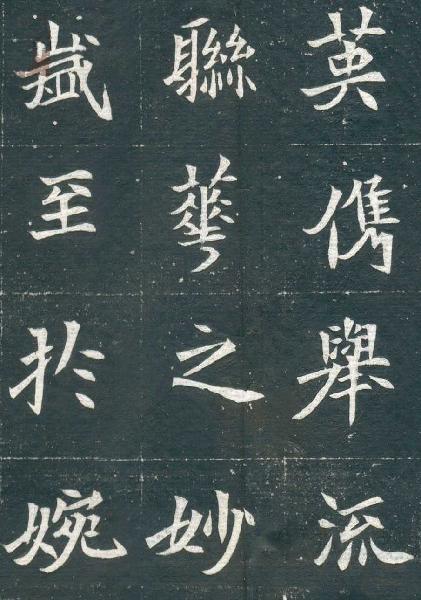 英儁舉流
聯華之妙
歲至於婉